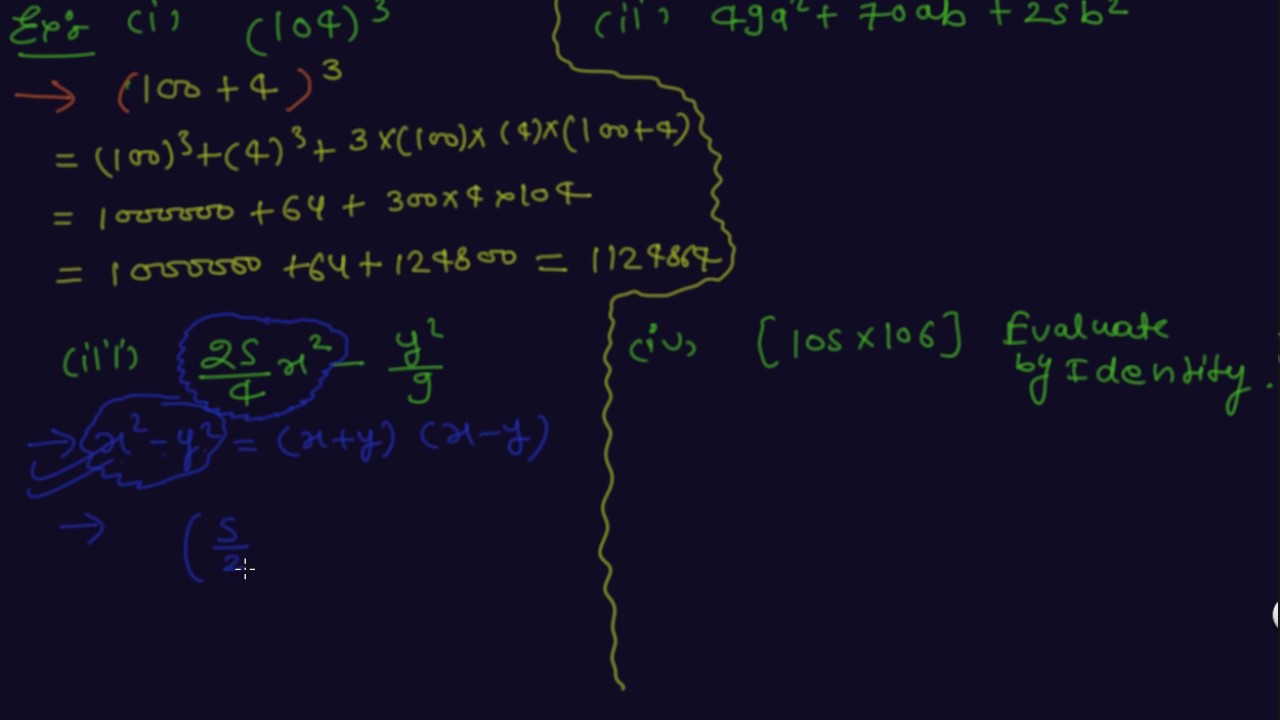 Exp:- (i) (104)³
→ (100+4)³
= (100)³+(4)³+ 3×(100)×(4)×(100+4)
= 1000000 +64 + 300×4×104
= 1000000 +64+124800 = 1124864
(ii) 49a²+ 70ab +25b²
(iii) 25/4 x² - y²/9
→ x²-y² = (x+y) (x-y)
→ (5/2
(iv) [105×106] Evaluate
by Identity.